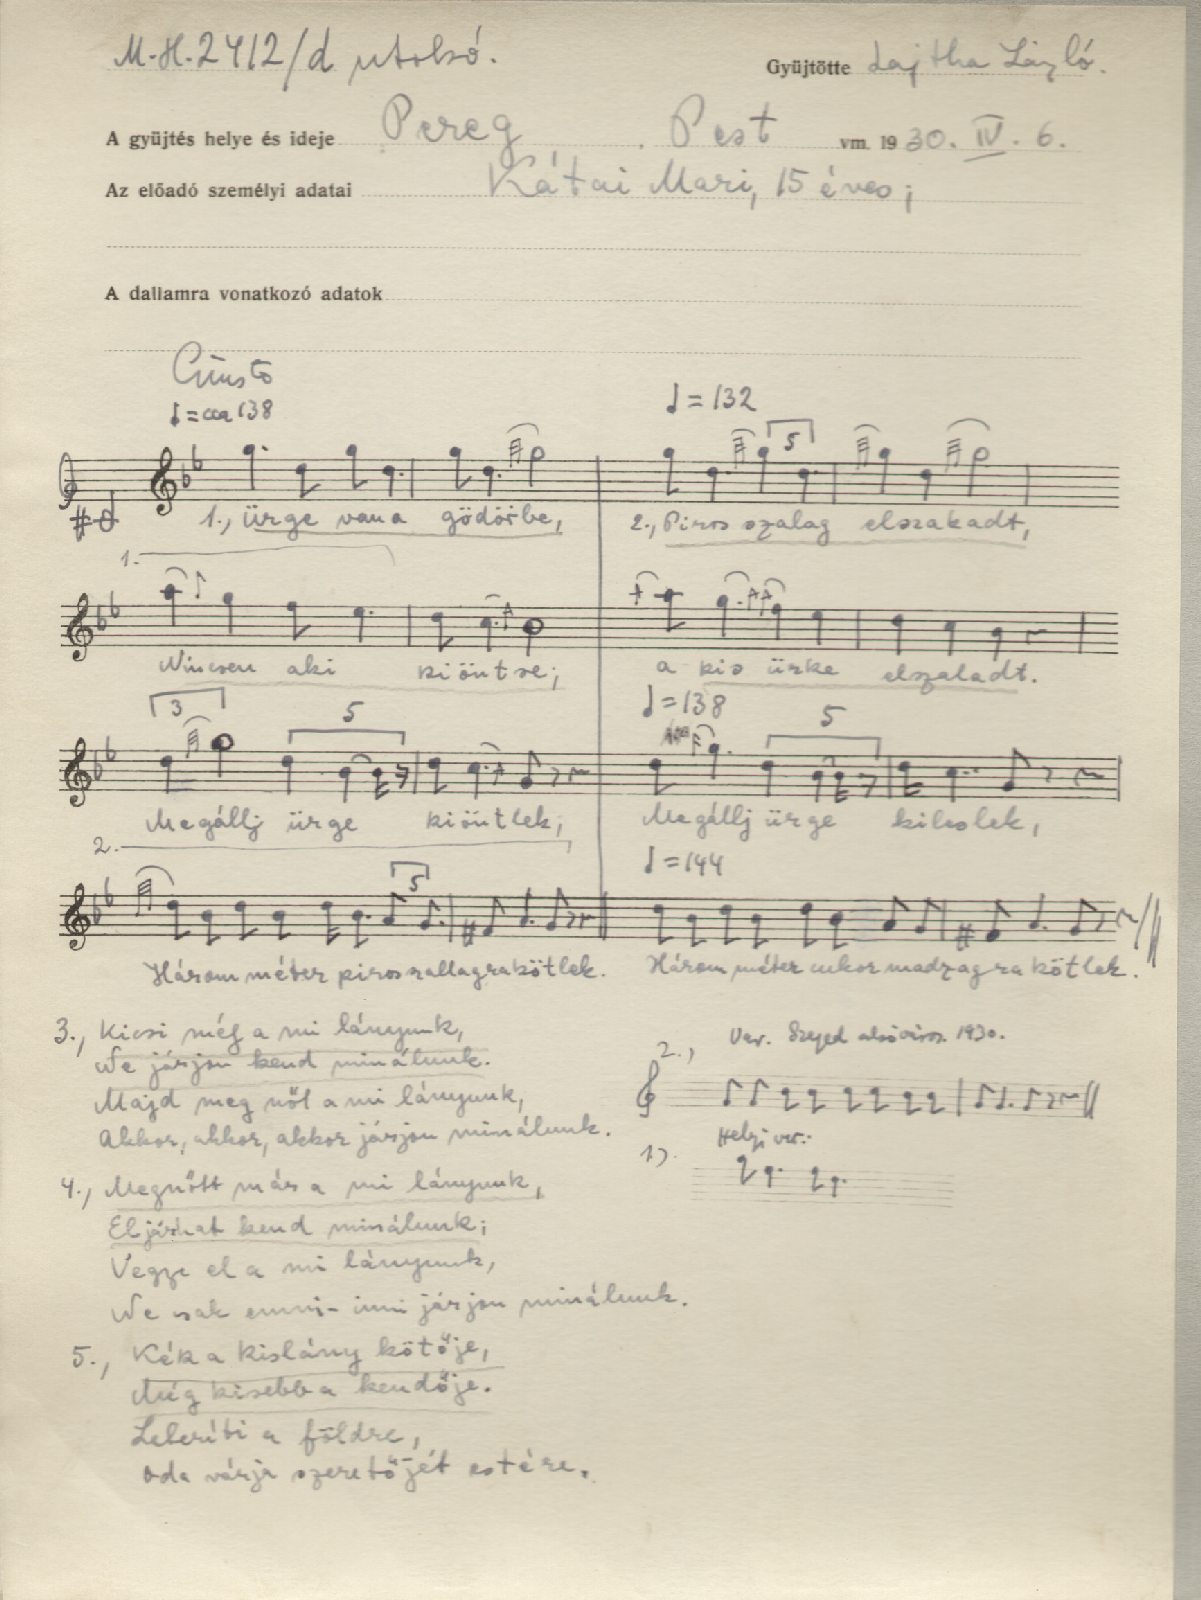 M.H. 2412/d utolsó.
Gyüjtötte Lajtha László.
A gyüjtés helye és ideje Pereg Pest vm. 1930. IV. 6.
Az előadó személyi adatai Kátai Mari, 15 éves;
A dallamra vonatkozó adatok
♩ = cca 138
♩ = 132
5
1., ürge van a gödörbe,
2., Piros szalag elszakadt,
1.
Nincsen aki kiöntse;
a kis ürke elszaladt.
♩ = 138
3
5
5
Megállj ürge kiöntlek;
Megállj ürge kileslek,
2.
♩ = 144
5
Három méter piros szallagra kötlek.
Három méter cukor madzagra kötlek.
3., Kicsi még a mi lányunk,
Ne járjon kend minálunk.
Majd meg nől a mi lányunk,
Akkor, akkor, akkor járjon minálunk.
4., Megnőtt már a mi lányunk,
Eljárhat kend minálunk;
Vegye el a mi lányunk,
Ne csak enni-inni járjon minálunk.
5., Kék a kislány kötője,
Még kisebb a kendője.
Leteríti a földre,
Oda várja szeretőjét estére.
Var. Szeged alsóváros. 1930.
2.,
Helyi var.:
1).